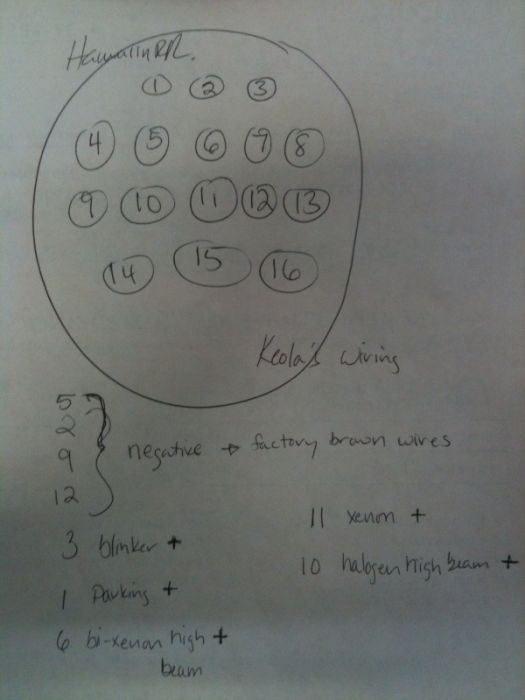 1 2 3
4 5 6 7 8
9 10 11 12 13
14 15 16
Keola's wiring
5
2
9
12
negative → factory brown wires
3 blinker +
1 Parking +
6 bi-xenon high +
beam
11 xenon +
10 halogen high beam +